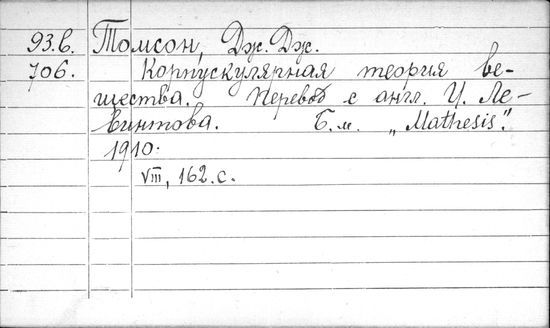 93.в. Томсон, Дж. Дж.
706. Корпускулярная теория ве-
щества. Перевод с англ. И. Ле-
винтова. Б.м. „Mathesis".
1910.
VIII, 162.с.